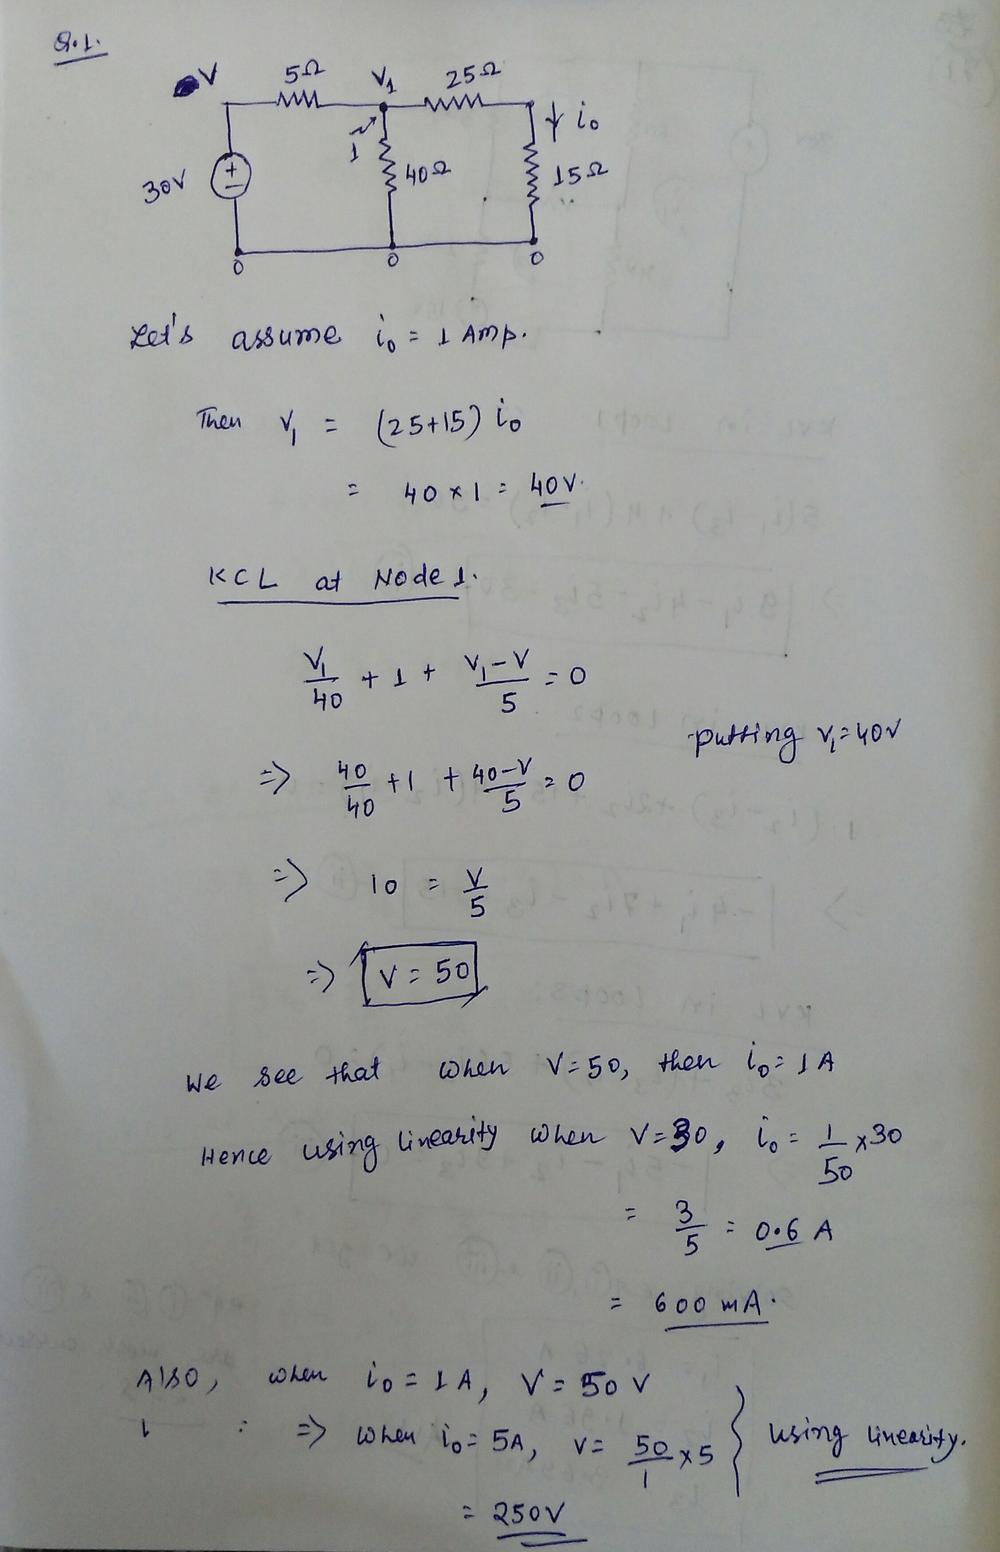 Q.1.
V 5Ω V₁ 25Ω
1 i₀
30V + − 40Ω 15Ω
0 0 0
Let's assume i₀ = 1 Amp.
Then V₁ = (25+15) i₀
= 40 × 1 = 40V.
KCL at Node 1.
V₁/40 + 1 + (V₁-V)/5 = 0
putting V₁=40V
⇒ 40/40 + 1 + (40-V)/5 = 0
⇒ 10 = V/5
⇒ V = 50
We see that when V=50, then i₀ = 1 A
Hence using linearity when V=30, i₀ = 1/50 × 30
= 3/5 = 0.6 A
= 600 mA.
Also, when i₀ = 1A, V = 50 V
⇒ when i₀ = 5A, V = 50/1 × 5 } using linearity.
= 250V